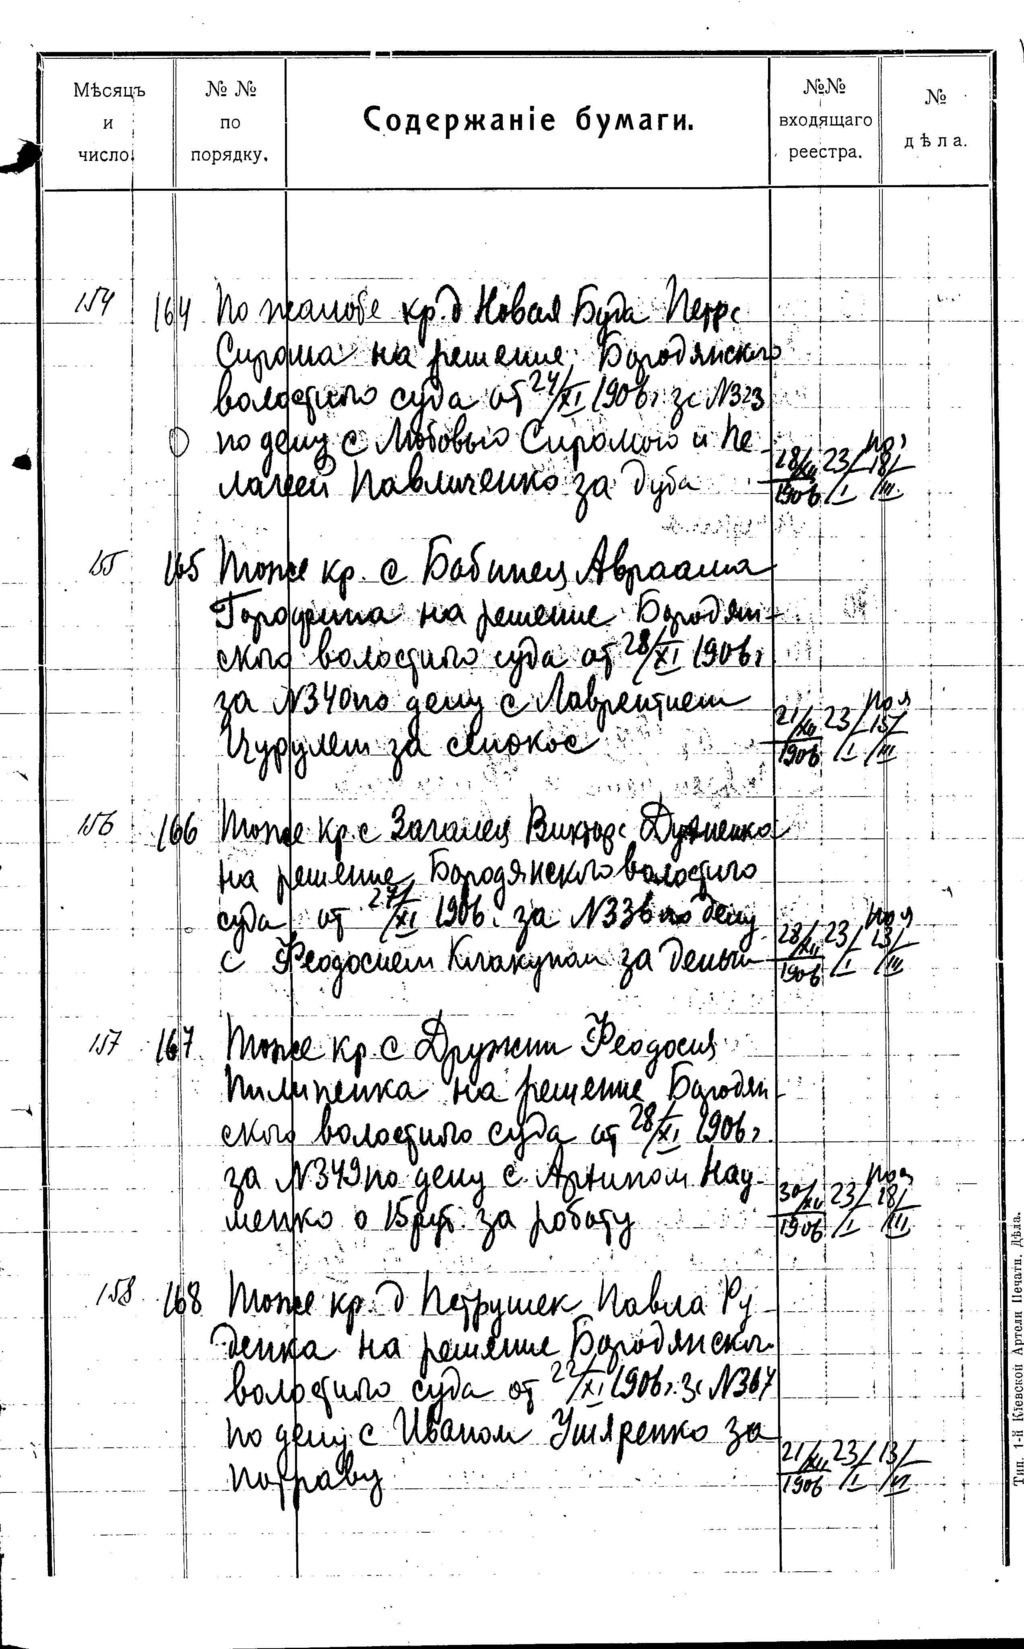 Мѣсяцъ и число.
№ № по порядку.
Содержаніе бумаги.
№№ входящаго реестра.
№ дѣла.
154 164 По жалобе кр. д Новая Буда Петра
Сирома на решение Бородянского
волостного суда от 24/XI 1906 г за N323
по делу с Любовью Сиромою и Пе-
лагеей Павличенко за дуба
28/XII 1906 23/I 18/III
155 165 Тоже кр. с Бабинец Авраама
на решение Бородян-
ского волостного суда от 28/XI 1906 г
за N340 по делу с Лаврентием
Цурулем за сенокос
21/XII 1906 23/I 15/III
156 166 Тоже кр с Загалец Виктора
на решение Бородянского волостного
суда от 27/XI 1906. за N336 по делу
с Феодосием за деньги
28/XII 1906 23/I 23/III
157 167 Тоже кр с Дружни Феодосия
Пилипенка на решение Бородян-
ского волостного суда от 28/XI 1906 г
за N349 по делу с Архипом Нау-
менко о 15 руб. за работу
30/XII 1906 23/I 28/III
158 168 Тоже кр. д Петрушек Павла Ру
денка на решение Бородянског
волостного суда от 22/XI 1906 г. за N367
по делу с Иваном за
потраву
21/XII 1906 23/I 13/III
Тип. 1-й Кіевской Артели Печатн. Дѣла.